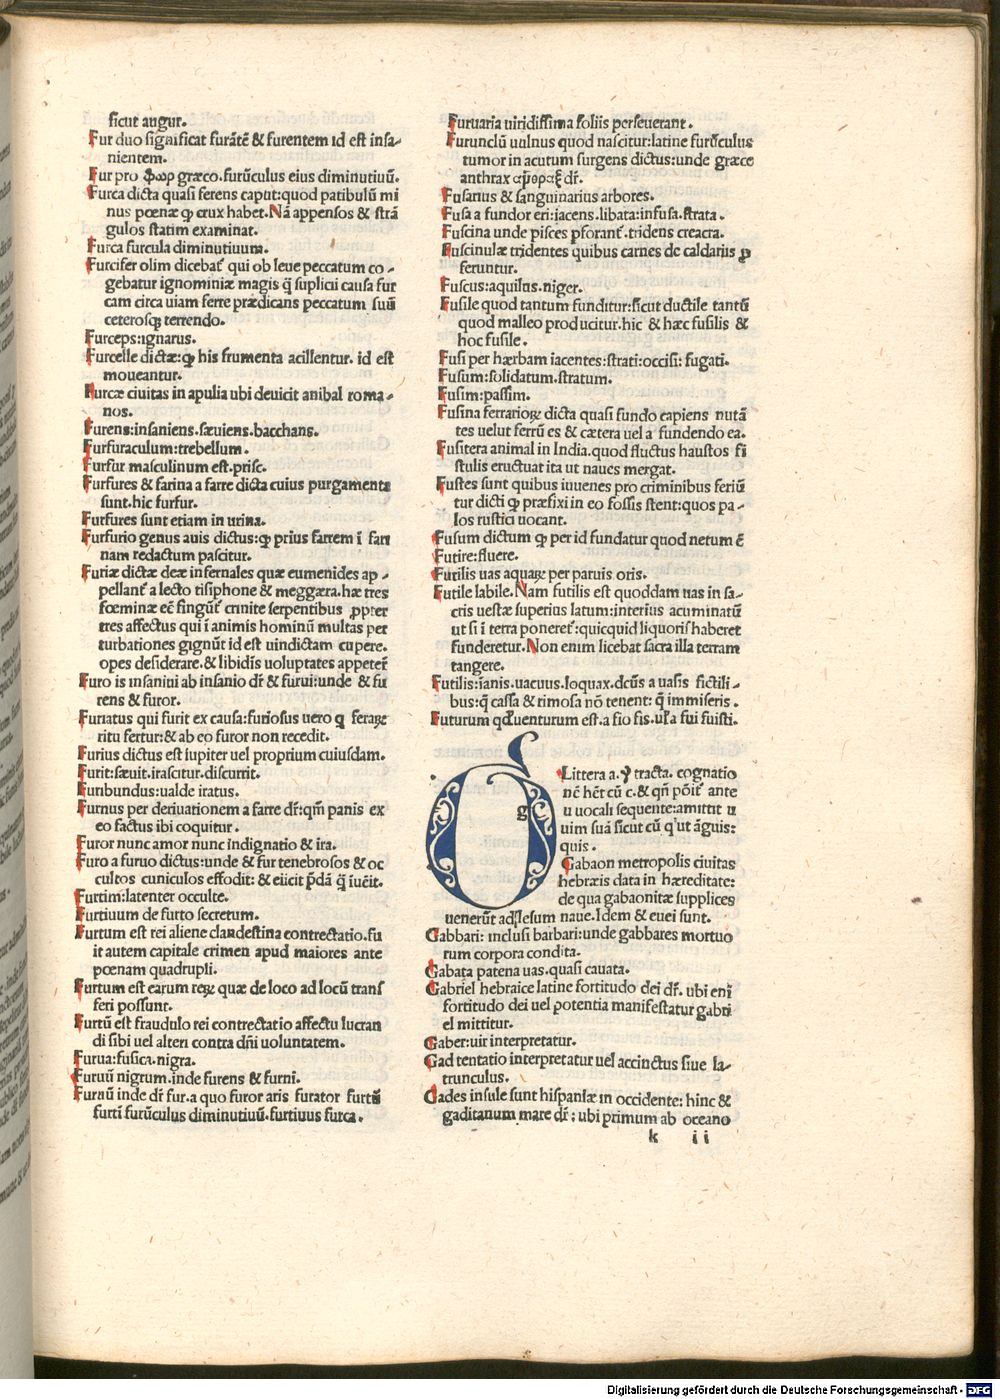 sicut augur.
Fur duo significat furātē & furentem id est insa-
nientem.
Fur pro φωρ græco.furūculus eius diminutiuū.
Furca dicta quasi ferens caput:quod patibulū mi
nus pœnæ ꝙ crux habet.Nā appensos & strā
gulos statim examinat.
Furca furcula diminutiuum.
Furcifer olim dicebat᷑ qui ob leue peccatum co-
gebatur ignominiæ magis q̄ suplicii causa fur
cam circa uiam ferre prædicans peccatum suū
ceterosqꝫ terrendo.
Furceps:ignarus.
Furcelle dictæ:ꝙ his frumenta acillentur. id est
moueantur.
Furcæ ciuitas in apulia ubi deuicit anibal roma-
nos.
Furens:insaniens.sæuiens.bacchans.
Furfuraculum:trebellum.
Furfur masculinum est.prisc.
Furfures & farina a farre dicta cuius purgamenta
sunt.hic furfur.
Furfures sunt etiam in urina.
Furfurio genus auis dictus:ꝙ prius farrem ī fari
nam redactum pascitur.
Furiæ dictæ deæ infernales quæ eumenides ap-
pellant᷑ a lecto tisiphone & meggæra.hæ tres
fœminæ eē fingūt᷑ crinite serpentibus ꝓpter
tres affectus qui ī animis hominū multas per
turbationes gignūt id est uindictam cupere.
opes desiderare.& libidīs uoluptates appeterī
Furo is insaniui ab insanio dr̄ & furui:unde & fu
rens & furor.
Furiatus qui furit ex causa:furiosus uero q feraꝝ
ritu fertur:& ab eo furor non recedit.
Furius dictus est iupiter uel proprium cuiusdam.
Furit:sæuit.irascitur.discurrit.
Furibundus:ualde iratus.
Furnus per deriuationem a farre dr̄:qm̄ panis ex
eo factus ibi coquitur.
Furor nunc amor nunc indignatio & ira.
Furo a furuo dictus:unde & fur tenebrosos & oc
cultos cuniculos effodit: & eiicit p̄dā q̄ iuēit.
Furtim:latenter occulte.
Furtiuum de furto secretum.
Furtum est rei aliene clandestina contrectatio.fu
it autem capitale crimen apud maiores ante
pœnam quadrupli.
Furtum est earum reꝝ quæ de loco ad locū trans
ferri possunt.
Furtū est fraudulo rei contrectatio affectu lucran
di sibi uel alteri contra dn̄i uoluntatem.
Furua:fusica.nigra.
Furuū nigrum.inde furens & furni.
Furnū inde dr̄ fur.a quo furor aris furator furtū
furti furūculus diminutiuū.furtiuus furca.
Furuaria uiridissima foliis perseuerant.
Furunclū uulnus quod nascitur:latine furūculus
tumor in acutum surgens dictus:unde græce
anthrax dr̄.
Fusarius & sanguinarius arbores.
Fusa a fundor eri:iacens.libata:infusa.strata.
Fuscina unde pisces ꝑforant᷑.tridens creacra.
Fuscinulæ tridentes quibus carnes de caldariis ꝓ
feruntur.
Fuscus:aquilus.niger.
Fusile quod tantum funditur:sicut ductile tantū
quod malleo producitur.hic & hæc fusilis &
hoc fusile.
Fusi per hærbam iacentes:strati:occisi: fugati.
Fusum:solidatum.stratum.
Fusim:passim.
Fusina ferrarioꝝ dicta quasi fundo capiens nutā
tes uelut ferrū es & cætera uel a fundendo ea.
Fusitera animal in India.quod fluctus haustos fi
stulis eructuat ita ut naues mergat.
Fustes sunt quibus iuuenes pro criminibus feriū
tur dicti ꝙ præfixi in eo fossis stent:quos pa-
los rustici uocant.
Fusum dictum ꝙ per id fundatur quod netum ē
Futire:fluere.
Futilis uas aquaꝝ per paruis oris.
Futile labile.Nam futilis est quoddam uas in sa-
cris uestæ superius latum:interius acuminatū
ut si ī terra poneret᷑:quicquid liquoris haberet
funderetur.Non enim licebat sacra illa terram
tangere.
Futilis:īanis.uacuus.loquax.dc̄us a uasis fictili-
bus:q̄ cassa & rimosa nō tenent: q̄ immiseris.
Futurum qd̓ uenturum est.a fio fis.ul̓ a fui fuisti.
g
Littera a. tracta. cognatio
nē hēt cū c.& qn̄ pōit᷑ ante
u uocali sequente:amittit u
uim suā sicut cū q'ut āguis:
quis.
Gabaon metropolis ciuitas
hebræis data in hæreditate:
de qua gabaonitæ supplices
uenerūt ad Iesum naue.Idem & euei sunt.
Gabbari: inclusi barbari:unde gabbares mortuo
rum corpora condita.
Gabata patena uas.quasi cauata.
Gabriel hebraice latine fortitudo dei dr̄. ubi enī
fortitudo dei uel potentia manifestatur gabri
el mittitur.
Gaber:uir interpretatur.
Gad tentatio interpretatur uel accinctus siue la-
trunculus.
Gades insule sunt hispaniæ in occidente: hinc &
gaditanum mare dr̄: ubi primum ab oceano
k ii
Digitalisierung gefördert durch die Deutsche Forschungsgemeinschaft - DFG